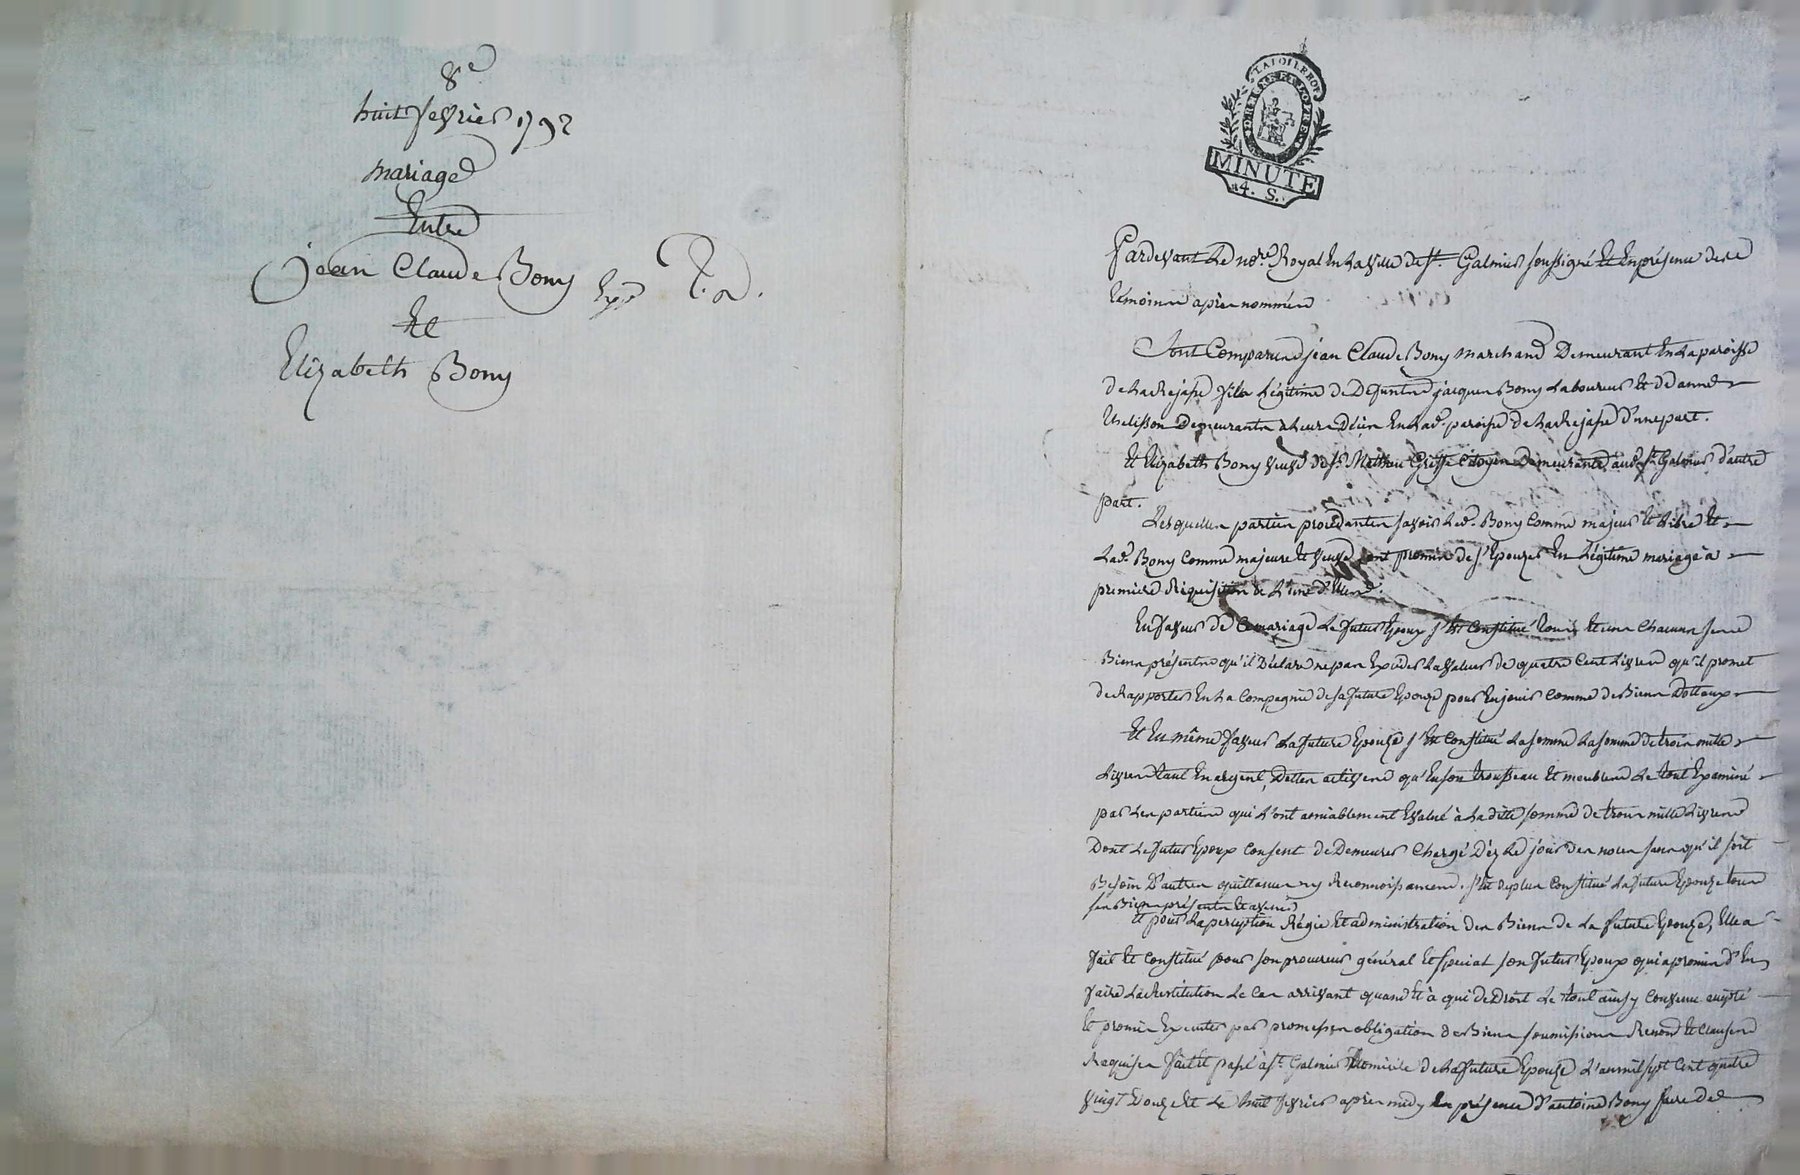 8e
huit fevrier 1792
mariage
Entre
jean Claude Bony
Et
Elizabeth Bony
LA LOI LE ROI
MINUTE
4. S.
Pardevant Le nore. Royal En La ville de St. Galmier soussigné Et En présence des
témoins après nommés
Sont Comparus jean Claude Bony marchand Demeurant En La paroisse
de fils Légitime de Defunt jacques Bony Laboureur Et d'anne
Demeurants En Lad. paroisse de d'une part.
Et Elizabeth Bony veuve de Sr. Mathieu Citoyen Demeurante aud. St. Galmier d'autre
part.
Lesquelles parties procedantes savoir Led. Bony Comme majeur Et Libre Et
Lad. Bony Comme majeure Et veuve ont promis de s'Epouzer En Légitime mariage à
premiere Réquisition de L'une d'Elles.
En faveur de Ce mariage Le futur Epoux s'Est Constitué tous Et un Chacuns ses
Biens présents qu'il Déclare ne pas Exceder La valeur de quatre Cent Livres qu'il promet
de Rapporter En La Compagnie de sa future Epouze pour En jouir Comme de Biens Dottaux
Et En même faveur La future Epouze s'Est Constitué La somme La somme de trois mille
Livres tant En argent, Dettes actives qu'En son trousseau Et meubles Le tout Examiné
par Les parties qui L'ont amiablement Evalué à La dite somme de trois mille Livres
Dont Le futur Epoux Consent de Demeurer Chargé Dès Le jour des noces sans qu'il soit
Besoin D'autres quittances ny Reconnoissances. s'Est de plus Constitué La future Epouze tous
ses Biens présents Et avenir
Et pour La perception Régie Et administration des Biens de La future Epouze, Elle a
fait Et Constitué pour son procureur général Et special son futur Epoux qui a promis d'En
faire La Restitution Le Cas arrivant quand Et à qui de Droit Le tout ainsy Convenu
Et promis Executer par promesses obligation de Biens soumissions Renon. Et Clauses
Requises fait Et passé à St. Galmier Domicile de La future Epouze L'an mil sept Cent quatre
vingt Douze Et Le huit fevrier après midy En présence d'antoine Bony frere de